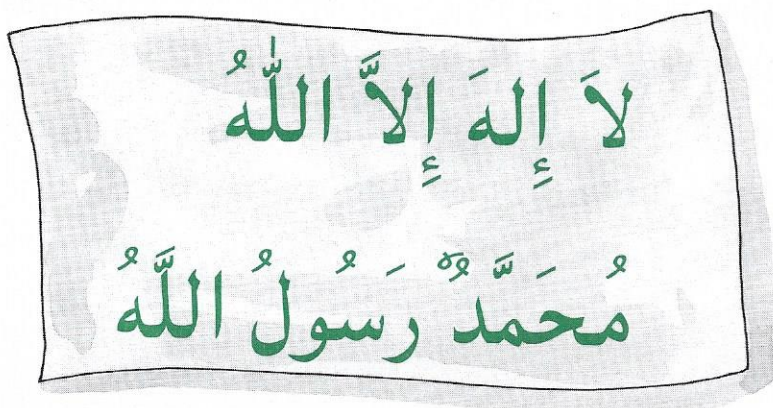 لاَ إِلهَ إِلاَّ اللّٰهُ
مُحَمَّدٌ رَسُولُ اللَّهُ